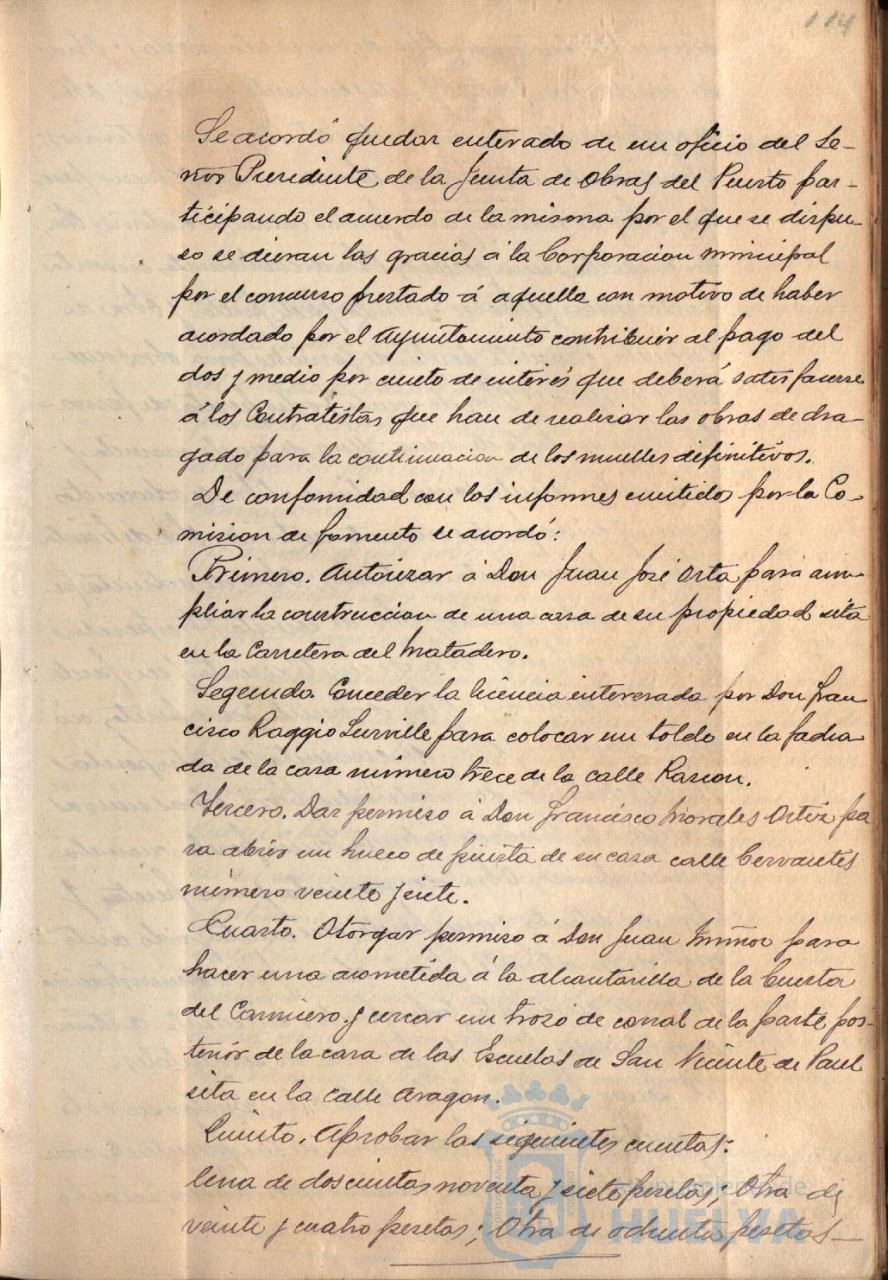 114
Se acordó quedar enterado de un oficio del Se-
ñor Presidente de la Junta de Obras del Puerto par-
ticipando el acuerdo de la misma por el que se dispu-
so se dieran las gracias á la Corporacion municipal
por el concurso prestado á aquella con motivo de haber
acordado por el Ayuntamiento contribuir al pago del
dos y medio por ciento de interés que deberá satisfacerse
á los Contratistas que han de realizar las obras de dra-
gado para la continuacion de los muelles definitivos.
De conformidad con los informes emitidos por la Co-
mision de fomento se acordó:
Primero. Autorizar á Don Juan José Orta para am-
pliar la construccion de una casa de su propiedad sita
en la Carretera del Matadero.
Segundo. Conceder la licencia interesada por Don Fran
cisco Raggio para colocar un toldo en la facha
da de la casa número trece de la calle Rascon.
Tercero. Dar permiso á Don Francisco Morales Ortiz pa
ra abrir un hueco de puerta de su casa calle Cervantes
número veinte y siete.
Cuarto. Otorgar permiso á Don Juan Muñoz para
hacer una acometida á la alcantarilla de la Cuesta
del Carnicero y cercar un trozo de corral de la parte pos-
terior de la casa de las Escuelas de San Vicente de Paul
sita en la calle Aragon.
Quinto. Aprobar las siguientes cuentas:
Una de doscientas noventa y siete pesetas; Otra de
veinte y cuatro pesetas; Otra de ochenta pesetas—
Ayuntamiento de
HUELVA